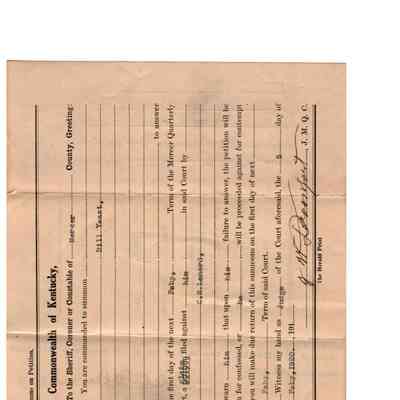 ns on Petition.
Commonwealth of Kentucky,
To the Sheriff, Coroner or Constable of Mercer County, Greeting:
You are commanded to summon
Bill Yeast,
to answer
e first day of the next Feby, Term of the Mercer Quarterly
t, a filed against him in said Court by
C.R.Lenard,
warn him that upon his failure to answer, the petition will be
n for confessed, or he will be proceeded against for contempt
ou will make due return of this summons on the first day of next
Feby, Term of said Court.
Witness my hand as Judge of the Court aforesaid, the 5 day of
Feby,1920. 191
J. M. Q. C.
The Herald Print